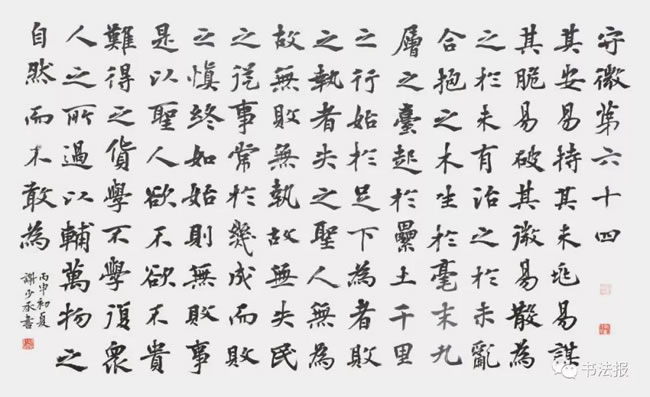 守微第六十四
其安易持其未兆易謀
其脆易破其微易散為
之於未有治之於未亂
合抱之木生於毫末九
層之臺起於纍土千里
之行始於足下為者敗
之執者失之聖人無為
故無敗無執故無失民
之從事常於幾成而敗
之慎終如始則無敗事
是以聖人欲不欲不貴
難得之貨學不學復衆
人之所過以輔萬物之
自然而不敢為
丙申初夏
謝少承書
书法报